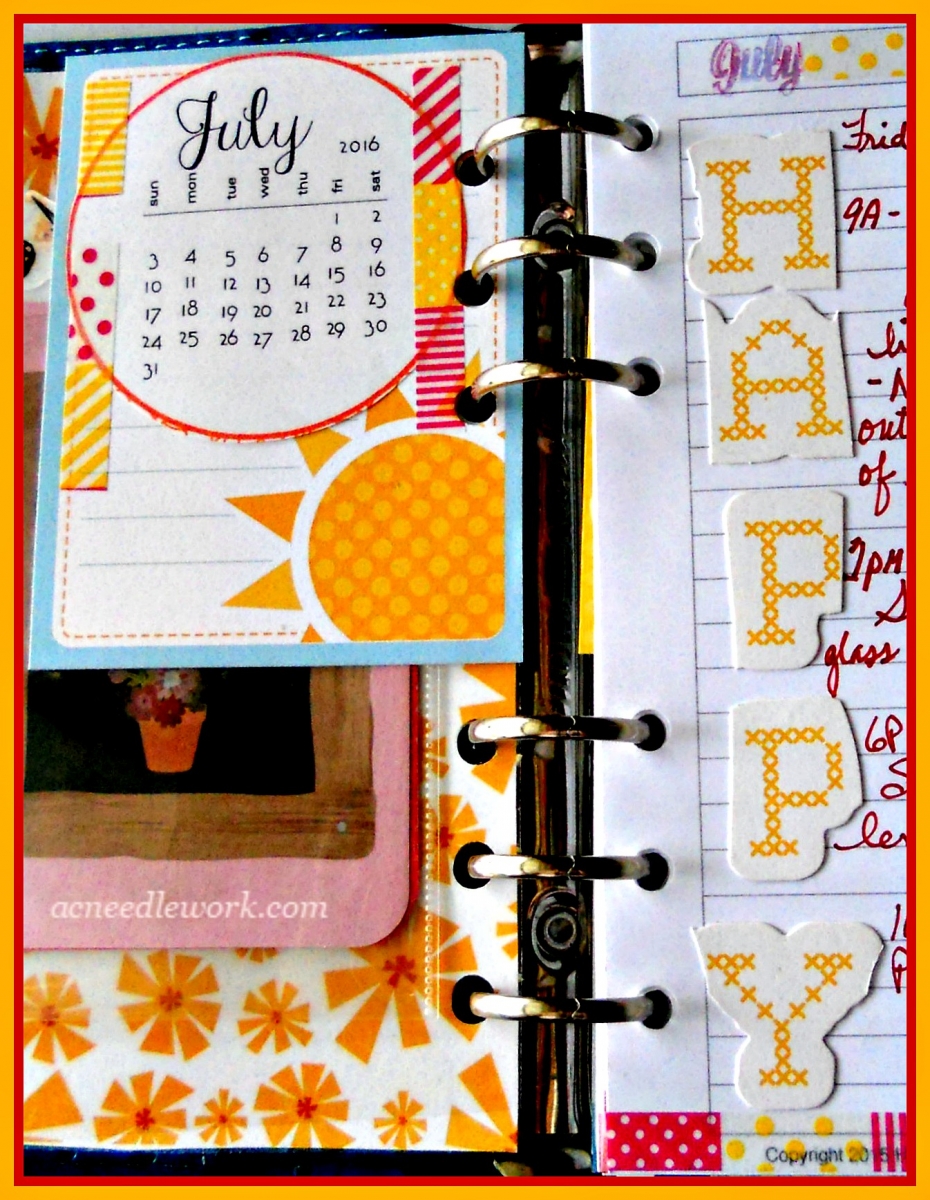 July
2016
sun mon tue wed thu fri sat
1 2
3 4 5 6 7 8 9
10 11 12 13 14 15 16
17 18 19 20 21 22 23
24 25 26 27 28 29 30
31
acneedlework.com
July
H
A
P
P
Y
9A-
out
of
7pm
glass
6P
Copyright